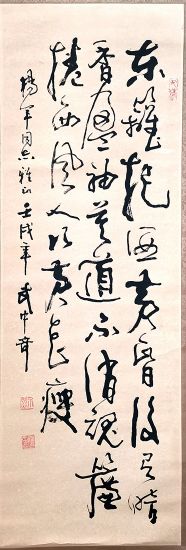 东篱把酒黄昏后有暗
香盈袖莫道不消魂帘
捲西风人比黄花瘦
杨军同志雅正 壬戌年 武中奇